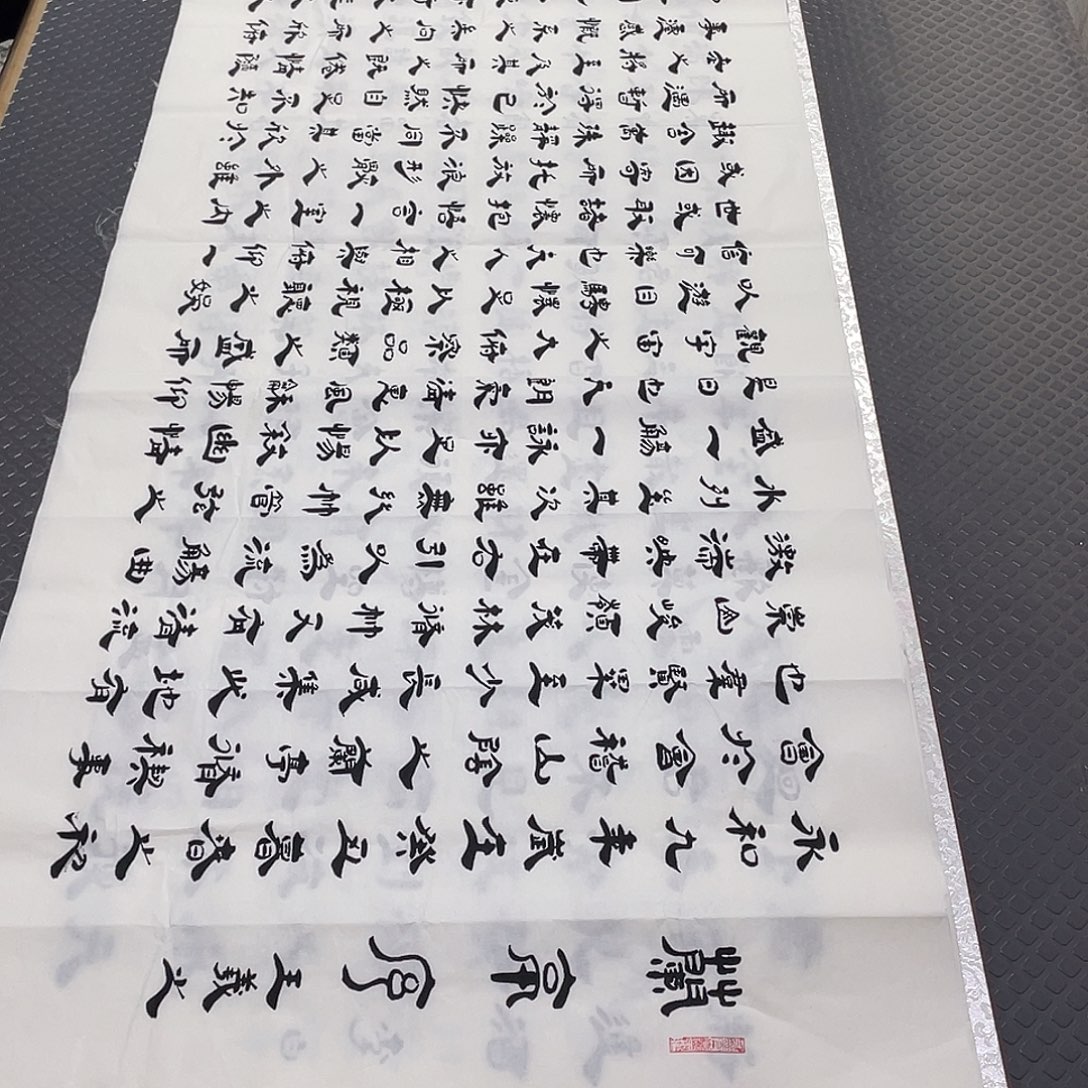 蘭亭序 王羲之
永和九年歲在癸丑暮春之初
會於會稽山陰之蘭亭脩禊事
也羣賢畢至少長咸集此地有
崇山峻領茂林脩竹又有清流
激湍映帶左右引以為流觴曲
水列坐其次雖無絲竹管弦之
盛一觴一詠亦足以暢敘幽情
是日也天朗氣清惠風龢暢仰
觀宇宙之大俯察品類之盛所
以遊目騁懷足以極視聽之娛
信可樂也夫人之相與俯仰一
世或取諸懷抱悟言一室之內
或因寄所託放浪形骸之外雖
趣舍萬殊靜躁不同當其欣於
所遇暫得於己快然自足不知
老之將至及其所之既倦情隨
事遷感慨係之矣向之所欣俯